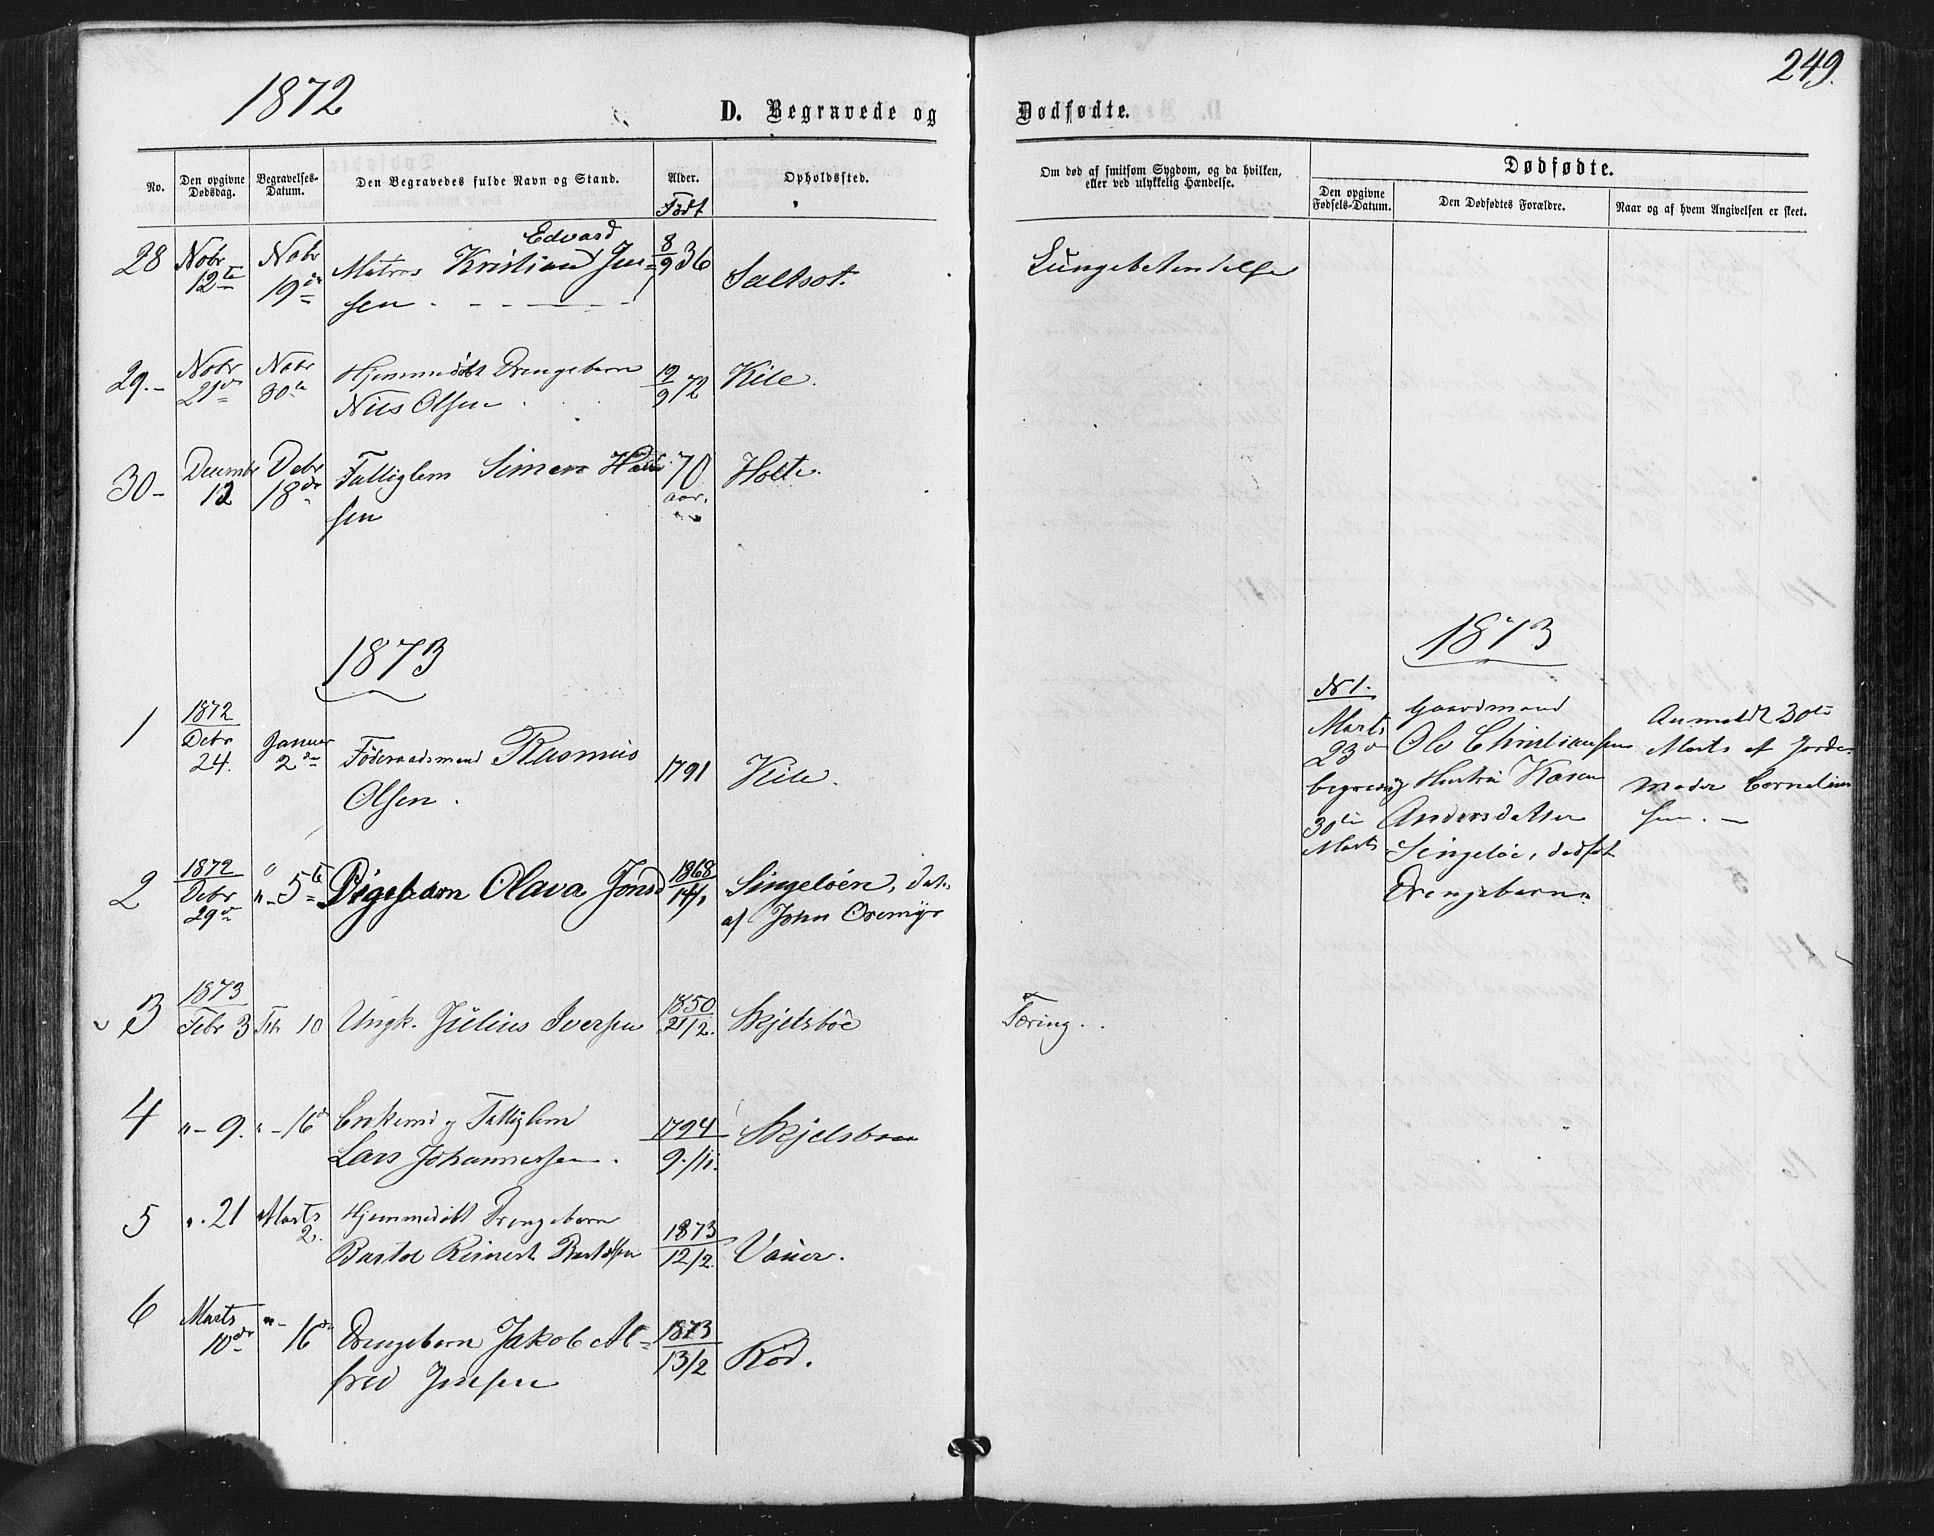 1872
249.
D. Begravede og Dødfødte.
No.
Den opgivne Dødsdag.
Begravelses-Datum.
Den Begravedes fulde Navn og Stand.
Alder.
Født
Opholdssted.
Om død af smitsom Sygdom, og da hvilken,
eller ved ulykkelig Hændelse.
Dødfødte.
Den opgivne Fødsels-Datum.
Den Dødfødtes Forældre.
Naar og af hvem Angivelsen er skeet.
28 Nobr 12te Nobr 19de Matros Kristian Edvard Jen= 8/9 36 Saltsot. Lungebetendelse
sen
29.- Nobr 21de Nobr 30te Hjemmedøbt Drengebarn 19/9 72 Kile.
Nils Olsen
30- Decembr 12 Debr 18de Fattiglem Simen Han 70 aar. Holte.
sen
1873
1 1872 Debr 24. Januar 2den Føderaadsmand Rasmus 1791 Kile.
Olsen.
2 1872 Debr 29de " - 5te Pigebarn Olava Jonsd 1868 14/1 Singeløen, dat.
af John Oremyr
3 1873 Febr 3 Febr 10 Ungk. Julius Iversen 1850 21/2. Skjelsböe Tæring.
4 " - 9. " - 16de Enkemd og Fattiglem 1794 Skjelsboe
Lars Johannessen. 9./11.
5 ". 21 Marts 2. Hjemmedøbt Drengebarn 1873
Bartol Reinert Bartolsen 12/2. Vauer.
6 Marts 10de " - 16de Drengebarn Jakob Al= 1873 13/2 Rød.
fred Jensen
1873
No 1.
Marts
23de
begravet
30te
Marts
Gaardmand
Ole Christiansen
og Hustru Karen
Andersdatter
Singeløe, dødfødt
Drengebarn.
Anmeldt 30te
Marts af Jorde-
moder Cornelius
sen. -